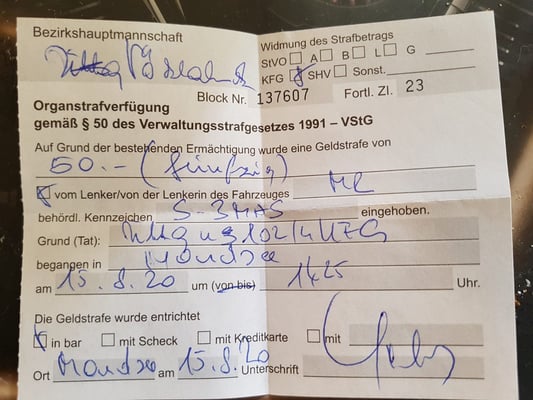 Bezirkshauptmannschaft
Vöcklabruck
Widmung des Strafbetrags
StVO A B L G
KFG SHV Sonst.
Block Nr. 137607 Fortl. Zl. 23
Organstrafverfügung
gemäß § 50 des Verwaltungsstrafgesetzes 1991 – VStG
Auf Grund der bestehenden Ermächtigung wurde eine Geldstrafe von
50.- (fünfzig)
vom Lenker/von der Lenkerin des Fahrzeuges
behördl. Kennzeichen S-3MAS eingehoben.
Grund (Tat): 102/4 KFG
begangen in Mondsee
am 15.8.20 um (von-bis) 1425 Uhr.
Die Geldstrafe wurde entrichtet
in bar mit Scheck mit Kreditkarte mit
Ort Mondsee am 15.8.20 Unterschrift